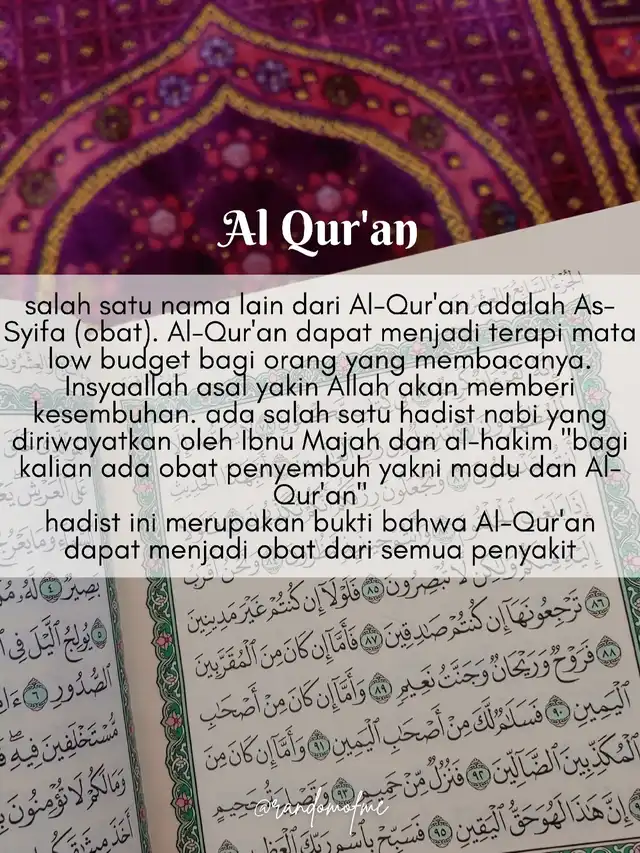 Al Qur'an
salah satu nama lain dari Al-Qur'an adalah As-
Syifa (obat). Al-Qur'an dapat menjadi terapi mata
low budget bagi orang yang membacanya.
Insyaallah asal yakin Allah akan memberi
kesembuhan. ada salah satu hadist nabi yang
diriwayatkan oleh Ibnu Majah dan al-hakim "bagi
kalian ada obat penyembuh yakni madu dan Al-
Qur'an"
hadist ini merupakan bukti bahwa Al-Qur'an
dapat menjadi obat dari semua penyakit
لَّا تُبْصِرُونَ ٨٥ فَلَوْلَا إِن كُنتُمْ غَيْرَ مَدِينِينَ
٨٦ تَرْجِعُونَهَا إِن كُنتُمْ صَٰدِقِينَ ٨٧ فَأَمَّا إِن كَانَ مِنَ ٱلْمُقَرَّبِينَ
٨٨ فَرَوْحٌ وَرَيْحَانٌ وَجَنَّتُ نَعِيمٍ ٨٩ وَأَمَّا إِن كَانَ مِنْ أَصْحَٰبِ
ٱلْيَمِينِ ٩٠ فَسَلَٰمٌ لَّكَ مِنْ أَصْحَٰبِ ٱلْيَمِينِ ٩١ وَأَمَّا إِن كَانَ مِنَ
ٱلْمُكَذِّبِينَ ٱلضَّآلِّينَ ٩٢ فَنُزُلٌ مِّنْ حَمِيمٍ ٩٣ جَحِيمٍ
إِنَّ هَٰذَا لَهُوَ حَقُّ ٱلْيَقِينِ ٩٥ فَسَبِّحْ بِٱسْمِ رَبِّكَ
بَصِيرٌ ٤ لَّهُۥ
٥ يُولِجُ ٱلَّيْلَ فِى
ٱلصُّدُورِ ٦
مُّسْتَخْلَفِينَ فِيهِ
وَمَا لَكُمْ لَا تُؤْمِنُونَ
@randomofme